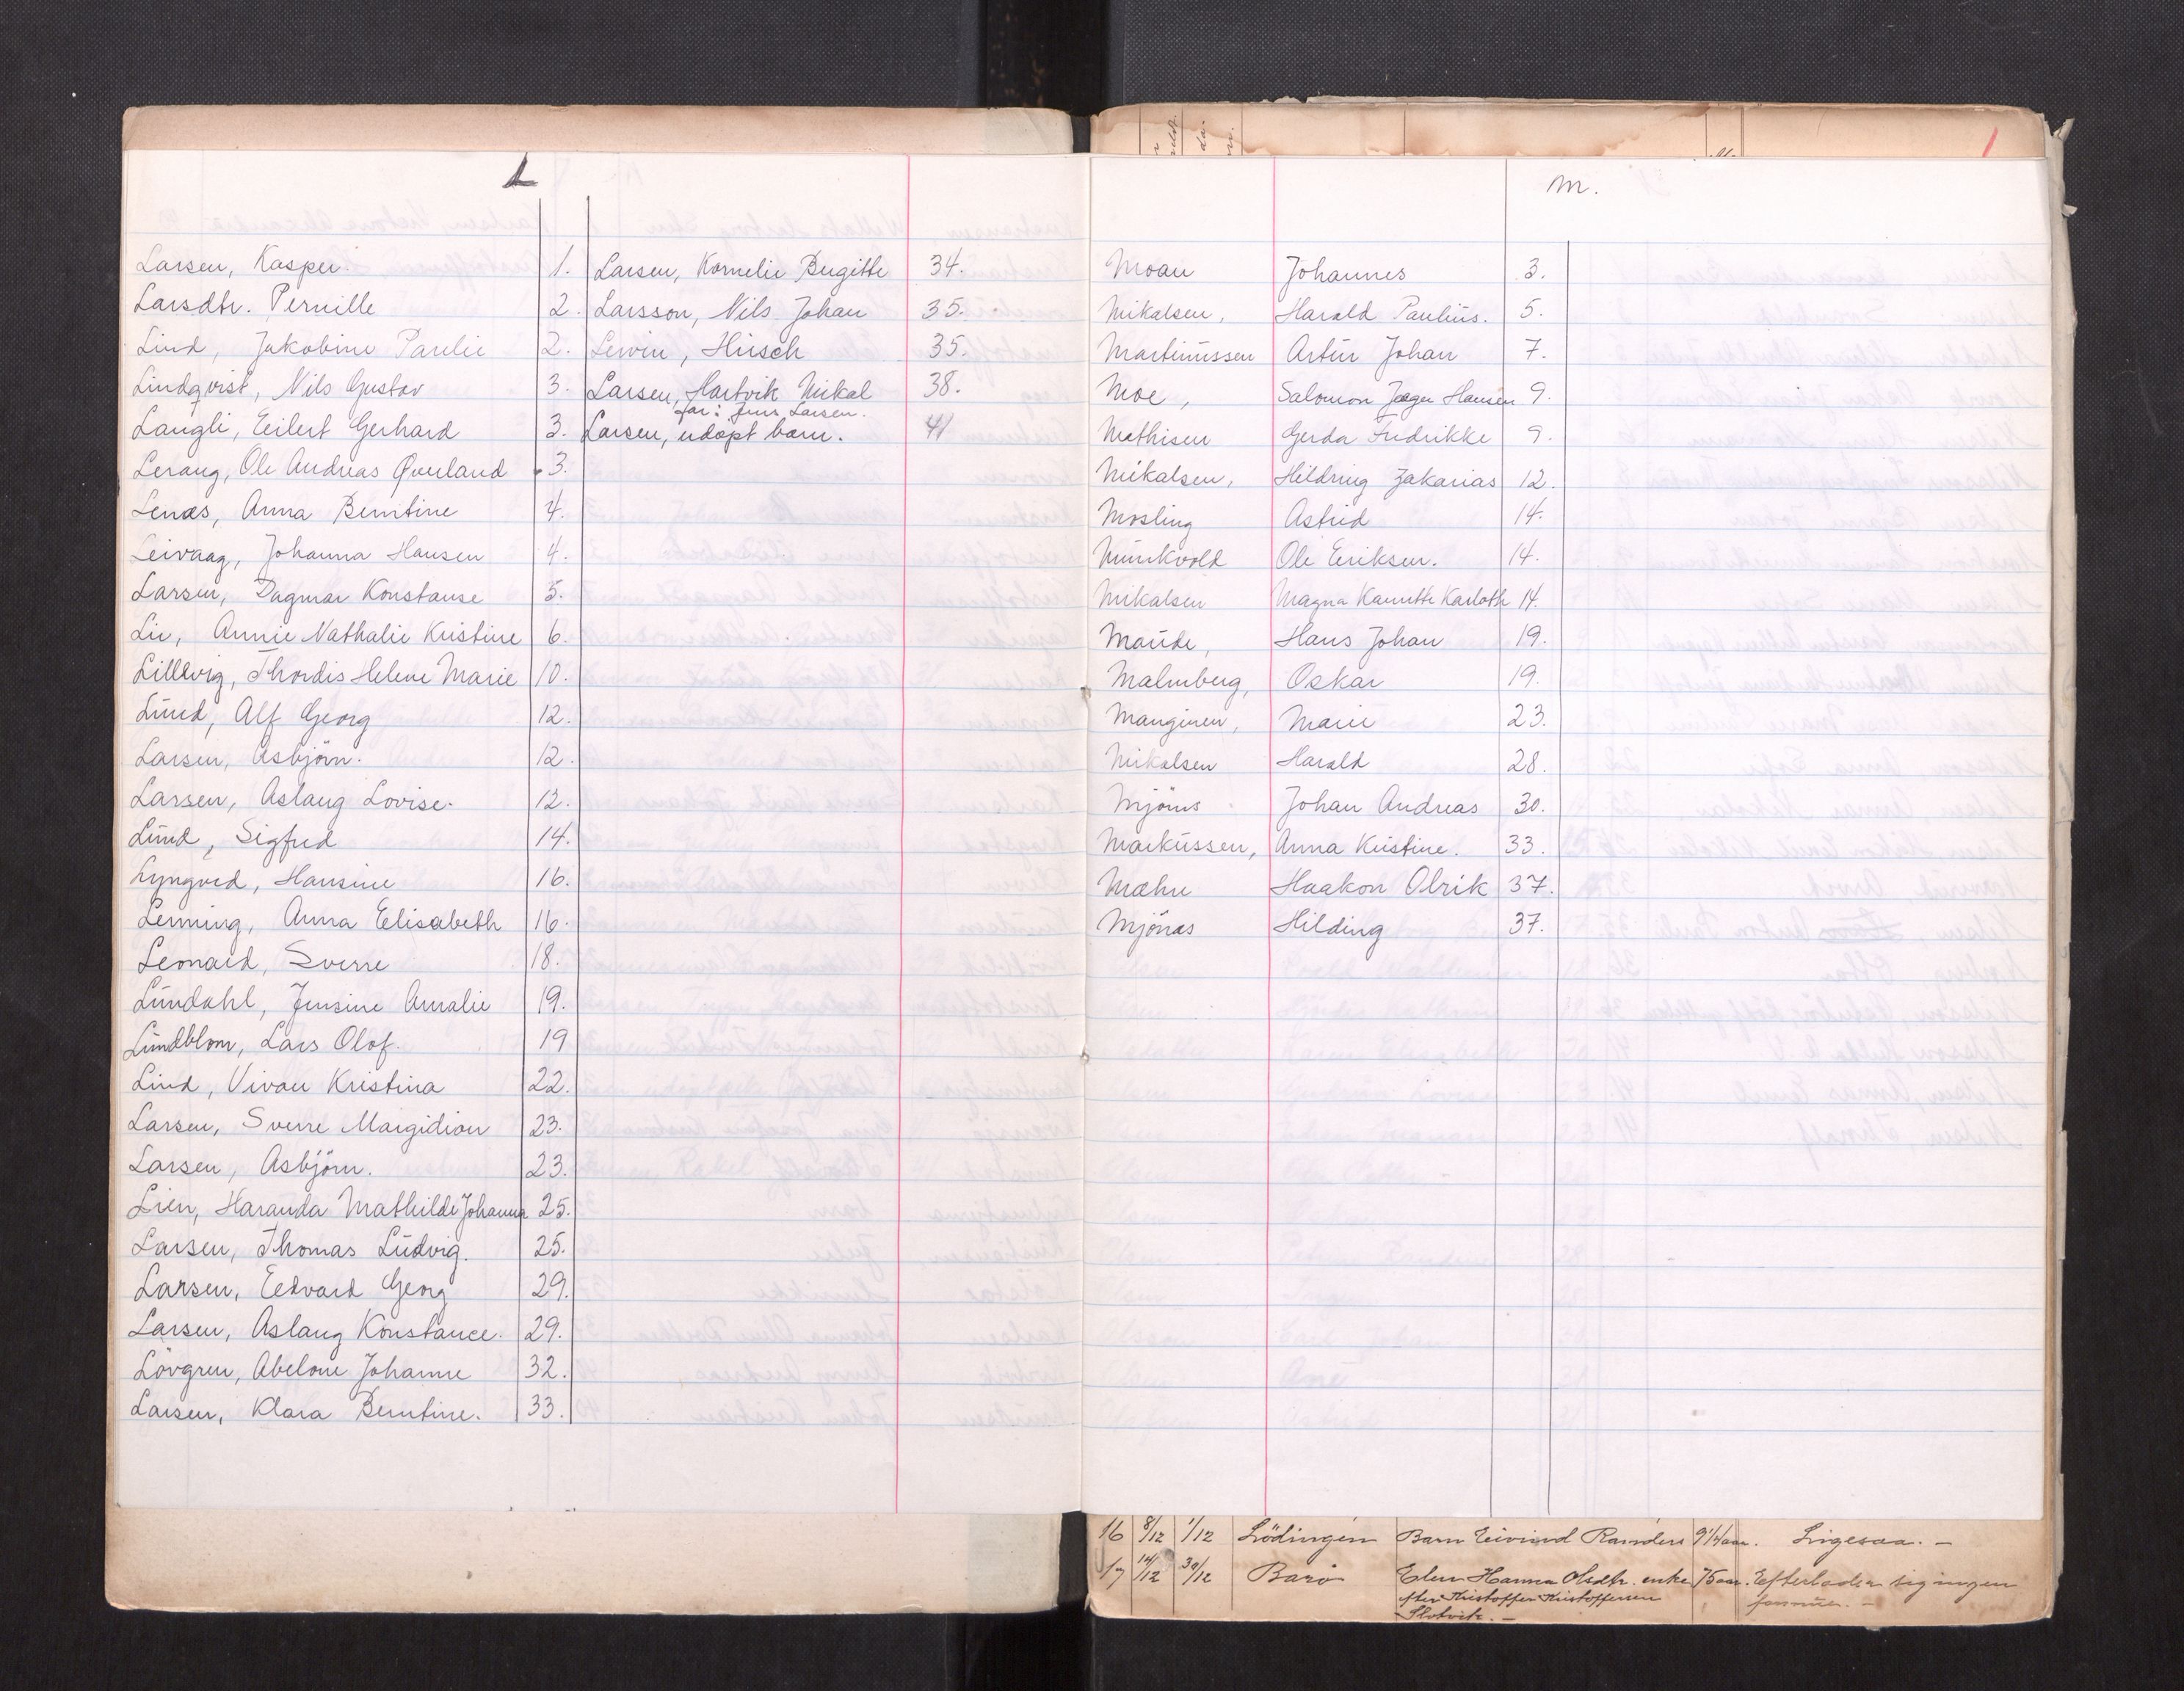 L
Larsen, Kasper. 1.
Larsdtr. Pernille 2.
Lind, Jakobine Paulie 2.
Lindqvist, Nils Gustav 3.
Langli, Eilert Gerhard 3.
Lerang, Ole Andreas Øverland 3.
Lenæs, Anna Berntine 4.
Leivaag, Johanna Hansen 4.
Larsen, Dagmar Konstanse 5.
Lie, Annie Nathalie Kristine 6.
Lillevig, Thordis Helene Marie 10.
Lund, Alf Georg 12.
Larsen, Asbjörn. 12.
Larsen, Aslaug Lovise. 12.
Lund, Sigfred 14.
Lyngved, Hansine 16.
Lenning, Anna Elisabeth 16.
Leonard, Sverre 18.
Lundahl, Jensine Amalie 19.
Lundblom, Lars Olof. 19
Lind, Vivan Kristina 22.
Larsen, Sverre Margidion 23.
Larsen, Asbjörn. 23.
Lien, Haranda Mathilde Johanna 25.
Larsen, Thomas Ludvig. 25.
Larsen, Edvard Georg 29.
Larsen, Aslaug Konstance. 29.
Lövgren, Abelone Johanne 32.
Larsen, Klara Berntine. 33.
Larsen, Kornelie Birgitte 34.
Larsson, Nils Johan 35.
Lewin, Hirsch 35.
Larsen, Hartvik Mikal 38.
far: Jens Larsen.
Larsen, udöpt barn. 41
M.
Moan Johannes 3.
Mikalsen, Harald Paulius. 5.
Martinussen Artur Johan 7.
Moe, Salomon Jæger Hansen 9.
Mathisen Gerda Fredrikke 9.
Mikalsen, Hildring Zakarias 12.
Mosling Astrid 14.
Munkvold Ole Eriksen. 14.
Mikalsen Magna Karloth 14.
Maude, Hans Johan 19.
Malmberg, Oskar 19.
Manginen, Marie 23.
Mikalsen Harald 28.
Mjönes Johan Andreas 30.
Markussen, Anna Kristine. 33.
Mæhre Haakon Olrik 37.
Mjönæs Hilding 37.
16 8/12 1/12 Lödingen Barn Eivind Randers 9 1/4 aar. Ligesaa. -
17 14/12 30/12 Barö Elen Hanna Olsdtr. enke 75 aar. Efterlader sig ingen
efter Kristoffer Kristoffersen formue. -